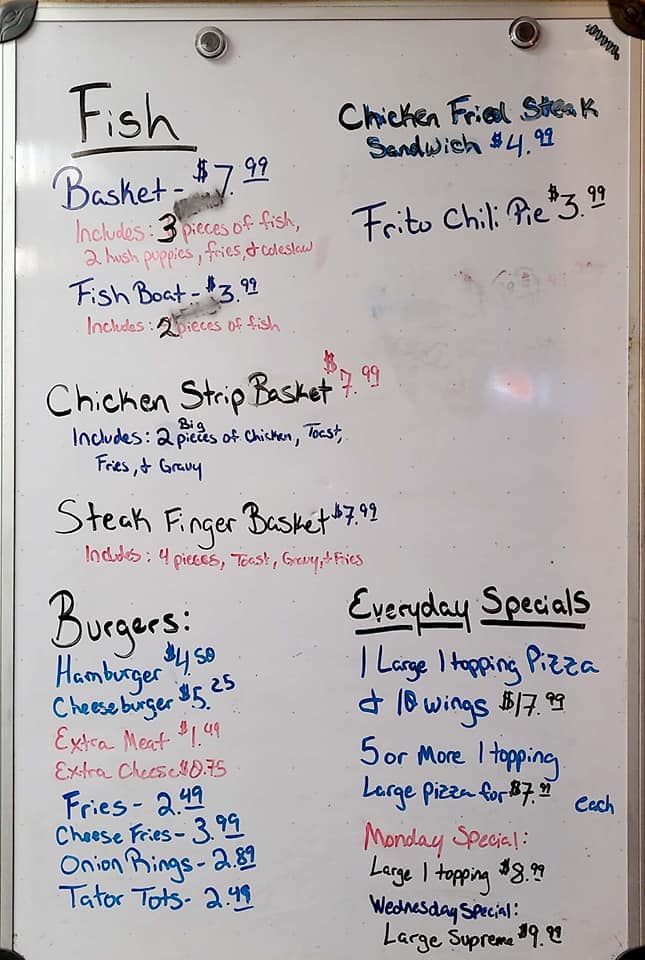 Fish
Basket - $7.99
Includes: 3 pieces of fish,
2 hush puppies, fries, & coleslaw
Fish Boat - $3.99
Includes: 2 pieces of fish
Chicken Strip Basket $7.99
Includes: 2 Big pieces of Chicken, Toast,
Fries, & Gravy
Steak Finger Basket $7.99
Includes: 4 pieces, Toast, Gravy, & Fries
Burgers:
Hamburger $4.50
Cheeseburger $5.25
Extra Meat $1.49
Extra Cheese $0.75
Fries - 2.49
Cheese Fries - 3.99
Onion Rings - 2.89
Tator Tots - 2.49
Chicken Fried Steak
Sandwich $4.99
Frito Chili Pie $3.99
Everyday Specials
1 Large 1 topping Pizza
& 10 wings $17.99
5 or More 1 topping
Large pizza for $7.99 each
Monday Special:
Large 1 topping $8.99
Wednesday Special:
Large Supreme $9.99